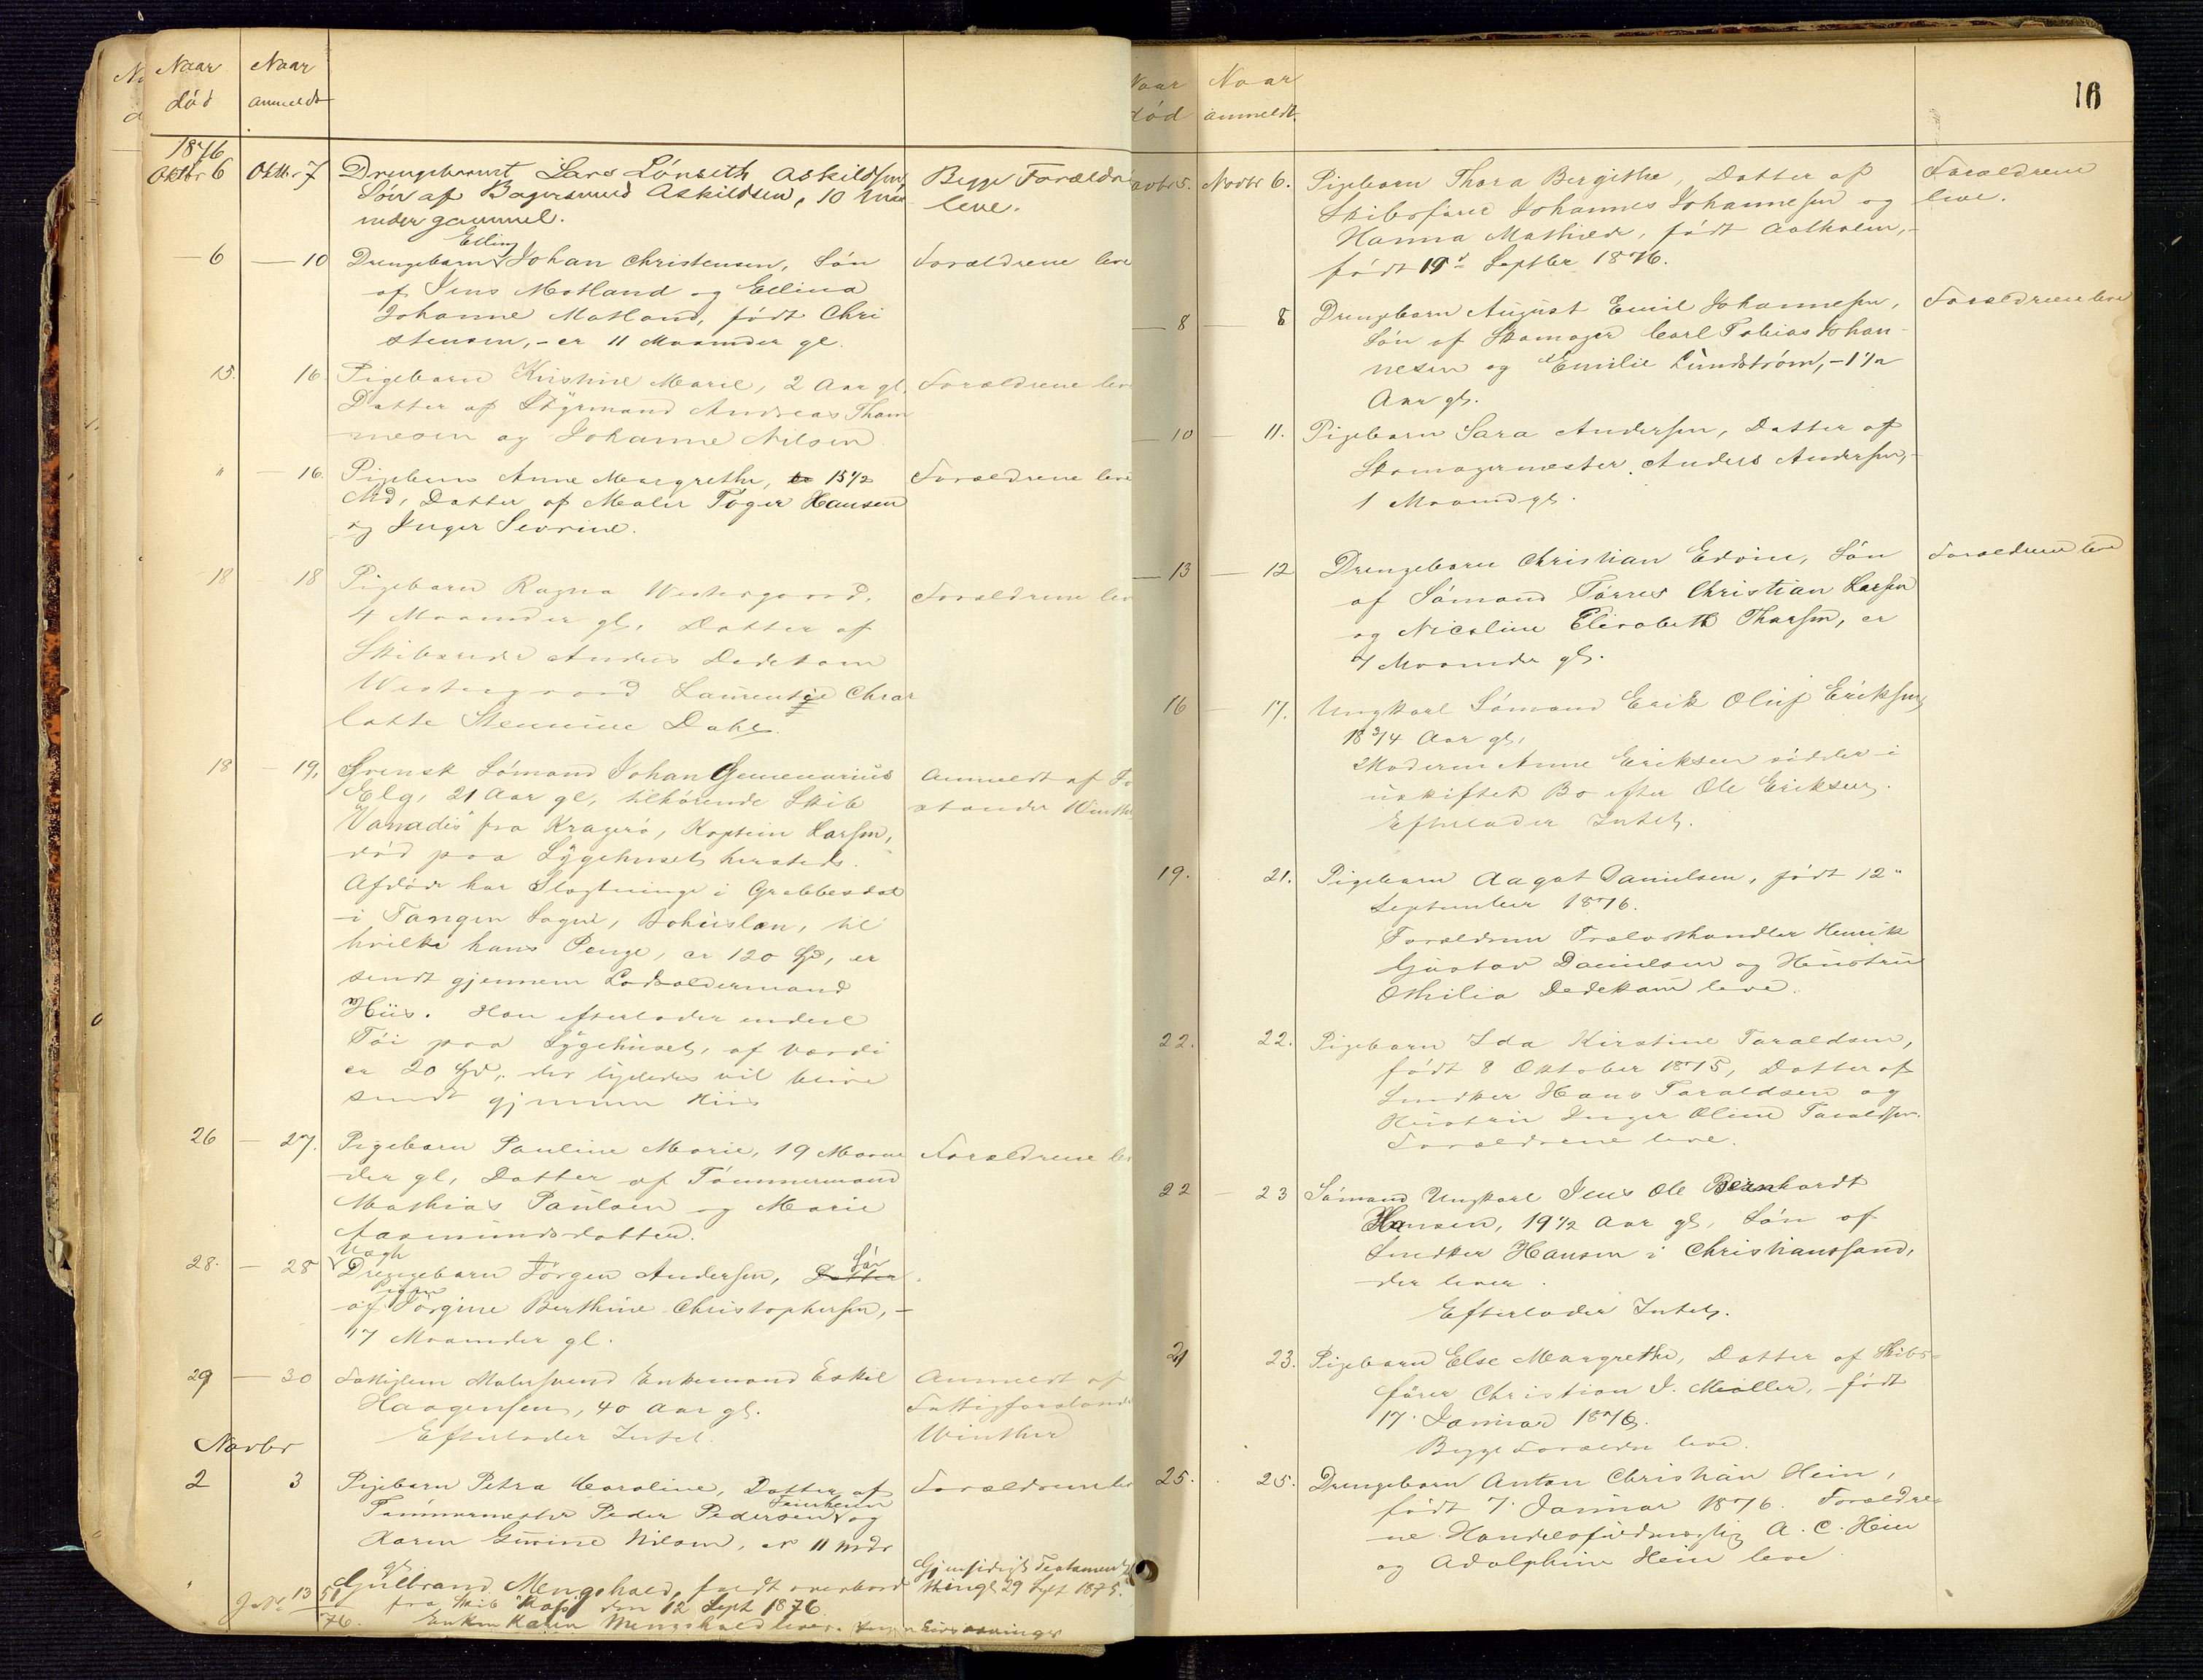 Naar
død
Naar
anmeldt
1876
Oktbr 6 Oktbr 7 Drengebarnet Lars Lönseth Askildsen, Begge Forældre
Søn af Askildsen, 10 Maa leve.
neder gammel.
Elling
6 10 Drengebarn Johan Christensen, Søn Forældrene leve
af Jens Motland og Ellina
Johanne Motland, født Chri
stensen, - er 11 Maaneder gl.
15. 16. Pigebarn Kirstine Marie, 2 Aar gl. Forældrene leve
Datter af Styrmand Andreas Thom
mesen og Johanne Nilsen
" 16. Pigebarn Anne Margrethe, 15 1/2 Forældrene leve
Md, Datter af Maler Töger Hansen
og Inger Severine.
18 18 Pigebarn Ragna Westergaard, Forældrene leve
4 Maaneder gl, Datter af
Skibsreder Anders Dedekam
Westergaard Laurentze Char
lotte Stennine Dahl.
18 19, Svensk Sömand Johan Gemenarius Anmeldt af Fo
Elg, 21 Aar gl, tilhörende Skib stander Winther
"Vanadis" fra Kragerö, Kaptein Larsen,
død paa Sygehuset hersteds.
Afdøde har Slægtninge i Grebbestad
i Tangen Sogn, Bohuslen, til
hvilke hans Penge, ca 120 Spd, er
sendt gjennem Lodsoldermand
Hiis. Han efterlader endeel
Töi paa Sygehuset, af Værdi
ca 20 Spd, der ligeledes vil blive
sendt gjennem Hiis
26 27. Pigebarn Pauline Marie, 19 Maane Forældrene leve
der gl, Datter af Tömmermand
Mathias Paulsen og Marie
Aasmundsdatter.
Uægte
28. 28 Drengebarn Jörgen Andersen, Datter Søn
af Pigen Jörgine Berthine Christophersen, -
17 Maaneder gl.
29 30 Fattiglem Malersvend Enkemand Eskil Anmeldt af
Haagensen, 40 Aar gl. Fattigforstander
Efterlader Intet. Winther
Novbr
2 3 Pigebarn Petra Caroline, Datter af Forældrene leve
Tömmermester Peder Pedersen og
Karen Gurine Nilsen, er 11 Mdr
gl.
Gulbrand Mengshold, faldt overbord Gjensidigt Testament
fra Skib den 12 Sept 1876 thingl 29 Sept 1875.
Enken Karen Mengshold lever. Ingen Livsarvinger
16
Naar
død
Naar
anmeldt.
Novbr 5. Novbr 6. Pigebarn Thora Bergithe, Datter af Forældrene
Skibsfører Johannes Johannesen og leve.
Hanna Mathilde, født Aalholm, -
født 19 Septbr 1876.
8 8 Drengebarn August Emil Johannesen, Forældrene leve
Søn af Skomager Carl Tobias Johan
nesen og Emilie Lundström, - 1 1/2
Aar gl.
10 11. Pigebarn Sara Andersen, Datter af
Skomagermester Anders Andersen, -
1 Maaned gl.
13 12 Drengebarn Christian Edvin, Søn Forældrene leve
af Sömand Törres Christian Larsen
og Nicoline Elisabeth Tharsen, er
7 Maaneder gl.
16 17. Ungkarl Sömand Erik Oluf Eriksen,
18 3/4 Aar gl,
Moderen Anne Eriksen sidder i
uskiftet Bo efter Ole Eriksen.
Efterlader Intet.
19. 21. Pigebarn Aagot Danielsen, født 12"
September 1876.
Forældrene Trælasthandler Henrik
Gustav Danielsen og Hustru
Othilia Dedekam leve.
22. 22. Pigebarn Ida Kirstine Taraldsen,
født 8 Oktober 1875, Datter af
Snedker Hans Taraldsen og
Hustru Inger Oline Taraldsen.
Forældrene leve.
22 23 Sömand Ungkarl Jens Ole Bernhardt
Hansen, 19 1/2 Aar gl, Søn af
Snedker Hansen i Christianssand,
der lever.
Efterlader Intet.
21 23. Pigebarn Else Margrethe, Datter af Skibs-
fører Christian J. Möller, - født
17. Januar 1876.
Begge Forældre leve.
25. 25. Drengebarn Anton Christian Hein,
født 7. Januar 1876. Forældre-
ne Handelsfuldmægtig A. C. Hein
og Adolphine Hein leve